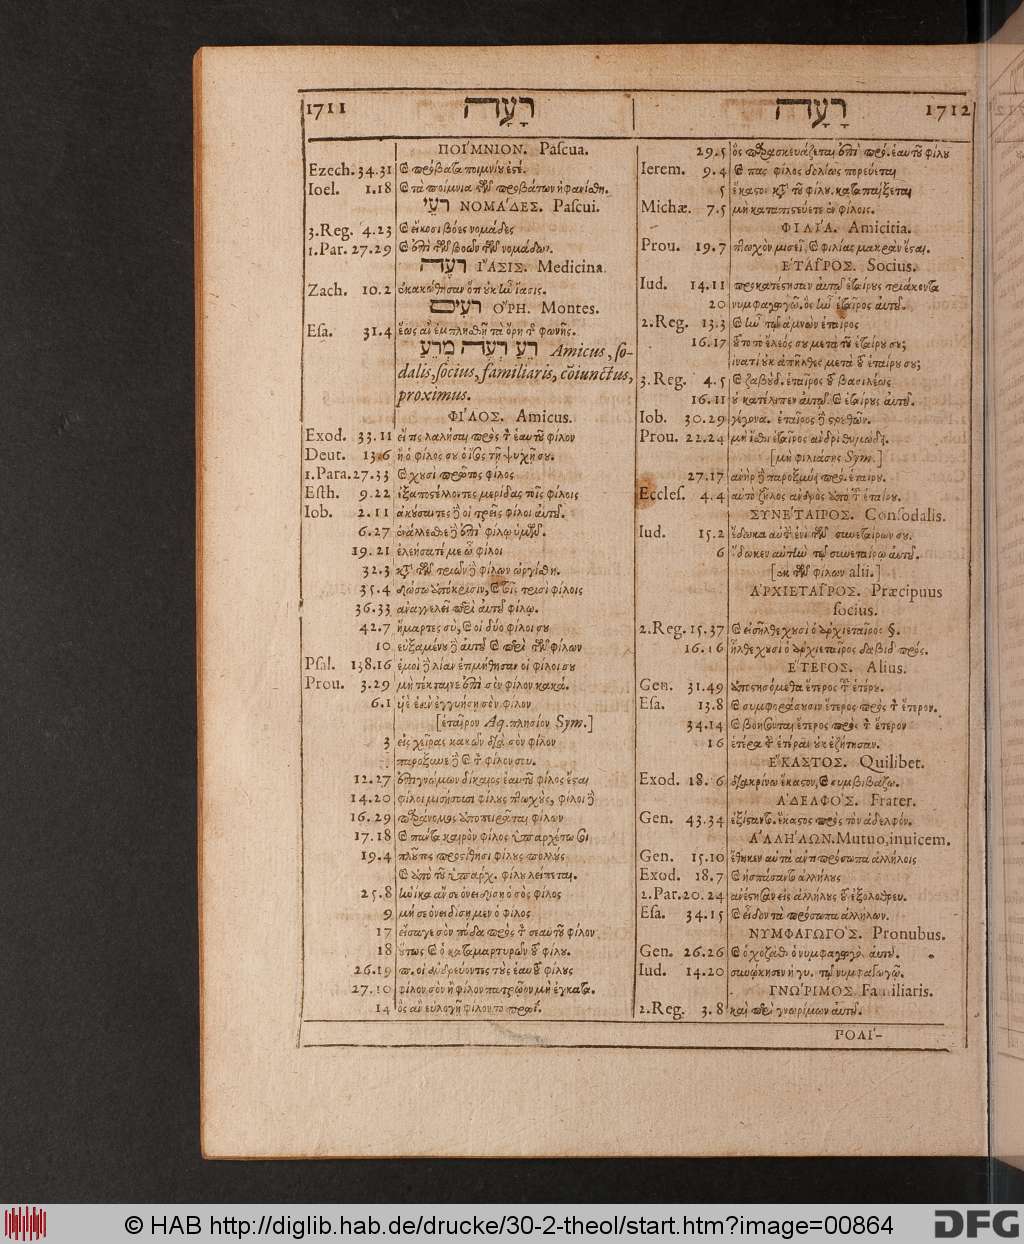 1711 רָעָה
ΠΟΙ´ΜΝΙΟΝ. Paſcua.
Ezech. 34.31 ϗ πρόβατα ποιμνίου ἐστέ.
Ioel. 1.18 ϗ τὰ ποίμνια τῶν προβάτων ἠφανίσθη.
רֹעִי ΝΟΜΑ´ΔΕΣ. Paſcui.
3.Reg. 4.23 ϗ εἴκοσι βόες νομάδες
1.Par. 27.29 ϗ ἐπὶ τῶν βοῶν τῶν νομάδων.
רֹעָה Ι῎ΑΣΙΣ. Medicina.
Zach. 10.2 ἐκακώθησαν ὅτι οὐκ ἦν ἴασις.
רֹעִים Ο῎ΡΗ. Montes.
Eſa. 31.4 ἕως ἂν ἐμπλησθῇ τὰ ὄρη τῆς φωνῆς.
רֵעַ רֵעֶה מֵרֵעַ Amicus, ſo-
dalis, ſocius, familiaris, cõiunctus,
proximus.
ΦΙ´ΛΟΣ. Amicus.
Exod. 33.11 εἴ τις λαλήσει πρὸς τὸν ἑαυτοῦ φίλον
Deut. 13.6 ἢ ὁ φίλος σου ὁ ἴσος τῇ ψυχῇ σου.
1.Para. 27.33 ϗ χουσὶ πρῶτος φίλος
Eſth. 9.22 ἐξαποστέλλοντες μερίδας τοῖς φίλοις
Iob. 2.11 ἀκούσαντες δὲ οἱ τρεῖς φίλοι αὐτοῦ.
6.27 ἐνάλλεσθε δὲ ἐπὶ φίλῳ ὑμῶν.
19.21 ἐλεήσατέ με ὦ φίλοι
32.3 κατὰ τῶν τριῶν δὲ φίλων ὠργίσθη.
35.4 δώσω ὑπόκρισιν, ϗ τοῖς τρισὶ φίλοις
36.33 ἀναγγελεῖ περὶ αὐτοῦ φίλῳ.
42.7 ἥμαρτες σὺ, ϗ οἱ δύο φίλοι σου
10 εὐξαμένου δὲ αὐτοῦ ϗ περὶ τῶν φίλων
Pſal. 138.16 ἐμοὶ δὲ λίαν ἐτιμήθησαν οἱ φίλοι σου
Prou. 3.29 μὴ τέκταινε ἐπὶ σὸν φίλον κακά.
6.1 υἱὲ ἐὰν ἐγγυήσῃ σὸν φίλον
[ἑταῖρον Aq. πλησίον Sym.]
3 εἰς χεῖρας κακῶν διὰ σὸν φίλον
παρόξυνε δὲ ϗ τὸν φίλον σου.
12.27 ἐπιγνώμων δίκαιος ἑαυτοῦ φίλος ἔσται
14.20 φίλοι μισήσουσι φίλους πτωχοὺς, φίλοι δὲ
16.29 παράνομος ἀποπειρᾶται φίλων
17.18 ϗ πάντα καιρὸν φίλος ὑπαρχέτω σοι
19.4 πλοῦτος προστίθησι φίλους πολλοὺς
ϗ ἀπὸ τοῦ ὑπαρχ. φίλου λείπεται.
25.8 ἡνίκα ἄν σε ὀνειδίσῃ ὁ σὸς φίλος
9 μή σε ὀνειδίσῃ μεν ὁ φίλος
17 εἴσαγε σὸν πόδα πρὸς τὸν σεαυτοῦ φίλον
18 οὕτως ϗ ὁ καταμαρτυρῶν τοῦ φίλου.
26.19 π. οἱ ἐνεδρεύοντες τοὺς ἑαυτοῦ φίλους
27.10 φίλον σὸν ἢ φίλον πατρῷον μὴ ἐγκατα.
14 ὃς ἂν εὐλογῇ φίλον τὸ πρωΐ.
רָעָה 1712
29.5 ὃς παρασκευάζεται ἐπὶ πρό. ἑαυτοῦ φίλου
Ierem. 9.4 ϗ πᾶς φίλος δολίως πορεύεται
5 ἕκαστος κατὰ τοῦ φίλου. καταπαίξεται
Michæ. 7.5 μὴ καταπιστεύετε ἐν φίλοις.
ΦΙΛΙ´Α. Amicitia.
Prou. 19.7 πτωχὸν μισεῖ, ϗ φιλίας μακρὰν ἔσται.
Ε῾ΤΑΙ῀ΡΟΣ. Socius.
Iud. 14.11 προκατέστησαν αὐτῷ ἑταίρους τριάκοντα
20 νυμφαγωγῷ. ὃς ἦν ἑταῖρος αὐτοῦ.
2.Reg. 13.3 ϗ ἦν τῷ ἀμνὼν ἑταῖρος
16.17 τοῦτο τὸ ἔλεός σου μετὰ τοῦ ἑταίρου σου;
ἱνατί οὐκ ἀπῆλθες μετὰ τοῦ ἑταίρου σου;
3.Reg. 4.5 ϗ ζαβοὺθ. ἑταῖρος τοῦ βασιλέως
16.11 οὐ κατέλιπεν αὐτοῦ. ϗ ἑταίρους αὐτοῦ.
Iob. 30.29 γέγονα. ἑταῖρος δὲ στρουθῶν.
Prou. 22.24 μὴ ἴσθι ἑταῖρος ἀνδρὶ θυμώδη.
[μὴ φιλιάσῃς Sym.]
27.17 ἀνὴρ δὲ παροξυνεῖ πρό. ἑταίρου.
Eccleſ. 4.4 αὐτὸ ζῆλος ἀνδρὸς ἀπὸ τοῦ ἑταίρου.
ΣΥΝΕ´ΤΑΙΡΟΣ. Conſodalis.
Iud. 15.2 ἔδωκα αὐτὴν ἑνὶ τῶν συνεταίρων σου.
6 ἔδωκεν αὐτὴν τῷ συνεταίρῳ αὐτοῦ.
[ἐκ τῶν φίλων alii.]
Α᾽ΡΧΙΕΤΑΙ῀ΡΟΣ. Præcipuus
ſocius.
2.Reg. 15.37 ϗ εἰσῆλθε χουσὶ ὁ ἀρχιεταῖρος δ.
16.16 ἦλθε χουσὶ ὁ ἀρχιεταῖρος δαβὶδ πρός.
Ε῞ΤΕΡΟΣ. Alius.
Gen. 31.49 ἀποστησόμεθα ἕτερος τοῦ ἑτέρου.
Eſa. 13.8 ϗ συμφοράσουσιν ἕτερος πρὸς τὸν ἕτερον.
34.14 ϗ βοήσονται ἕτερος πρὸς τὸν ἕτερον
16 ἑτέρα τὴν ἑτέραν οὐκ ἐζήτησαν.
Ε῞ΚΑΣΤΟΣ. Quilibet.
Exod. 18.6 διακρίνω ἕκαστον, ϗ συμβιβάζω.
Α᾽ΔΕΛΦΟ´Σ. Frater.
Gen. 43.34 ἐξίσταντο. ἕκαστος πρὸς τὸν ἀδελφόν.
Α᾽ΛΛΗ´ΛΩΝ. Mutuo, inuicem.
Gen. 15.10 ἔθηκεν αὐτὰ ἀντιπρόσωπα ἀλλήλοις
Exod. 18.7 ϗ ἠσπάσαντο ἀλλήλους
2.Par. 20.24 ἀνέστησαν εἰς ἀλλήλους τοῦ ἐξολοθρευ.
Eſa. 34.15 ϗ εἶδον τὰ πρόσωπα ἀλλήλων.
ΝΥΜΦΑΓΩΓΟ´Σ. Pronubus.
Gen. 26.26 ϗ ὀχοζὰθ ὁ νυμφαγωγὸς αὐτοῦ.
Iud. 14.20 συνῴκησεν ἡ γυ. τῷ νυμφαγωγῷ.
ΓΝΩ´ΡΙΜΟΣ. Familiaris.
2.Reg. 3.8 καὶ περὶ γνωρίμων αὐτοῦ.
ΠΟΛΙ´-
© HAB http://diglib.hab.de/drucke/30-2-theol/start.htm?image=00864
DFG